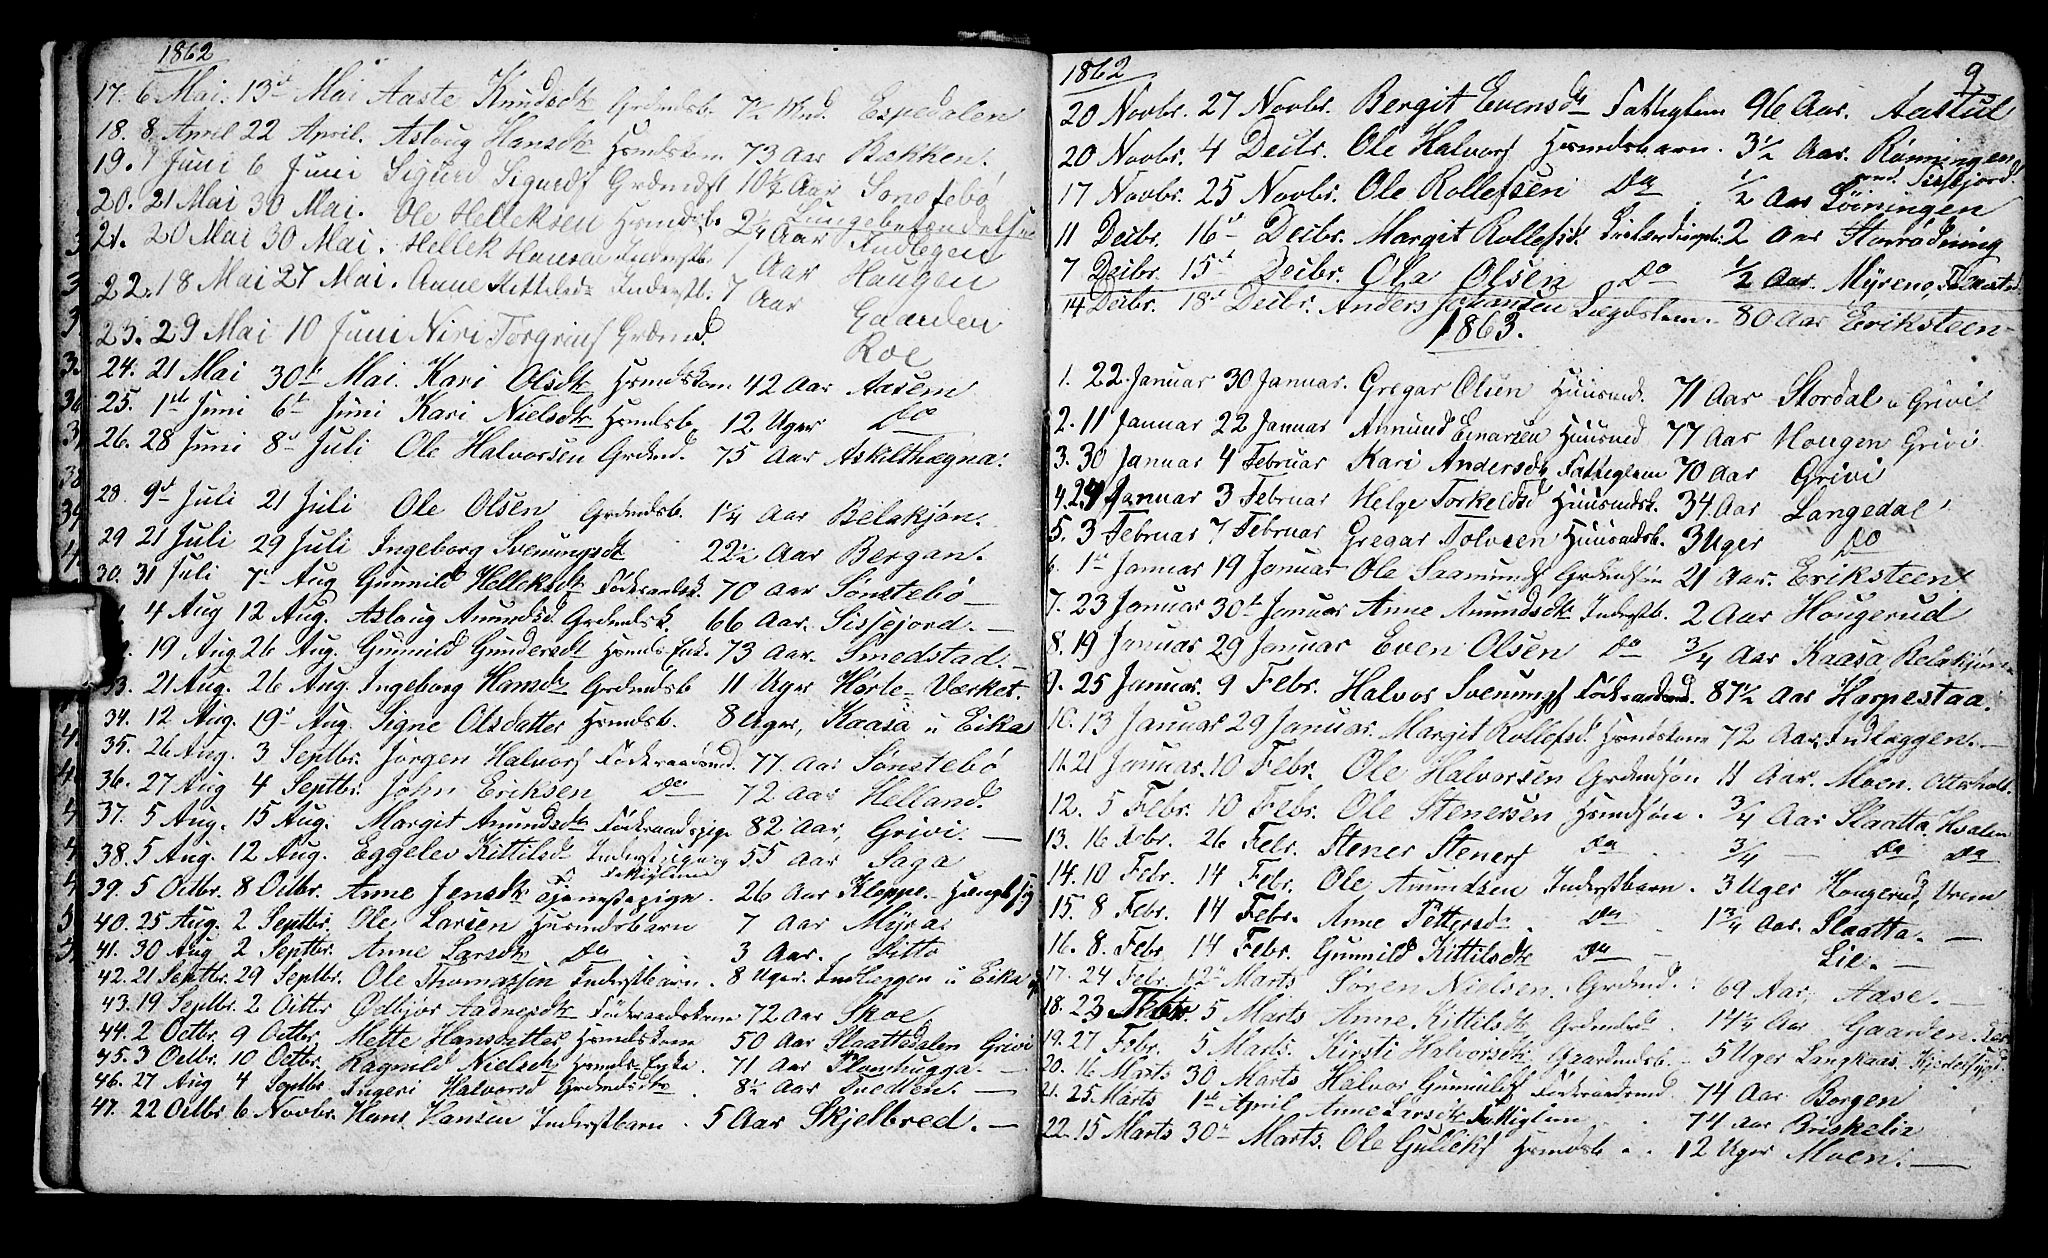 1862
17. 6 Mai. 13d Mai Aaste Knudsdtr Grdmdsb. 7½ Mnd. Espedalen
18. 8 April 22 April. Aslaug Hansdtr Hsmdskone 73 Aar Bakken.
19. 1 Juni 6 Juni Sigurd Sigurds Grdmds 10½ Aar Sønstebø
20. 21 Mai 30 Mai. Ole Helleksen Hsmdsb. 2¼ Aar Lungebetændelse
21. 20 Mai 30 Mai. Hellek Hansen Inderstb. 1 Aar Indlegen
22. 18 Mai 27 Mai. Anne Kittilsdr Inderstb. 7 Aar Haugen
23. 29 Mai 10 Juni Niri Torgrims Grdmd. Gaarden
Roe
24. 21 Mai 30te Mai. Kari Olsdtr Hsmdskone 42 Aar Aasem
25. 1ste Juni 6te Juni Kari Nielsdtr Hsmdsb. 12 Uger Do
26. 28 Juni 8d Juli Ole Halvorsen Grdmd. 75 Aar Askilthægna.
28. 9d Juli 21 Juli Ole Olsen Grdmdsb. 1¼ Aar Belakjøn.
29 21 Juli 29 Juli Ingeborg Svenungsdtr 22½ Aar Bergan.
30. 31 Juli 7d Aug Gunnild Helleksdtr Føderaadsk. 70 Aar Sønstebø
4 Aug 12 Aug. Aslaug Amundsd. Grdmdsk. 66 Aar. Sissejord.
19 Aug 26 Aug. Gunnild Gundersdtr Hsmds Enk. 73 Aar. Smedstad.
33. 21 Aug. 26 Aug. Ingeborg Hansdtr Grdmdsb 11 Uger Hørte-Værket.
34. 12 Aug. 19d Aug. Signe Olsdatter Hsmdsb. 8 Uger, Kaasa u Eika
35. 26 Aug. 3 Septbr. Jørgen Halvors Føderaadsmd. 77 Aar Sønstebø
36. 27 Aug 4 Septbr. John Eriksen Do 72 Aar Helland.
37. 5 Aug. 15 Aug. Margit Amundsdtr Føderaadspige 82 Aar, Grivi.
38. 5 Aug. 12 Aug. Eggelev Kittilsd. 55 Aar Saga
39. 5 Octbr. 8 Octbr. Anne Jensdtr Tjenestepige. 26 Aar Kleppe.
40. 25 Aug. 2 Septbr. Ole Larsen Husmdsbarn 7 Aar Myra.
41. 30 Aug 2 Septbr. Anne Larsdtr Do 3 Aar. Ditto
42. 21 Septbr. 29 Septbr. Ole Thomassen Inderstbarn. 8 Uger. Indleggen u Eika
43. 19 Septbr. 2 Octbr Ødbjør Aadnesdtr Føderaadskone 72 Aar Skoe.
44. 2 Octbr. 9 Octbr. Mette Hansdatter Hsmdskone 50 Aar Slaattedalen Grivi
45. 3 Octbr. 10 Octbr. Ragnild Nielsdtr Hsmds-Enke. 71 Aar
46. 27 Aug 4 Septbr Ingeri Halvorsd Grdmdsb. 8½ Aar Snedten.
47. 22 Octbr 6 Novbr. Hans Hansen Inderstbarn. 5 Aar Skjelbred.
1862
9
20 Novbr. 27 Novbr. Bergit Evensdtr Fattiglem 96 Aar. Aastul
20 Novbr. 4 Decbr. Ole Halvors Hsmdsbarn. 3½ Aar. Rønningen
und. Sissejord.
17 Novbr. 25 Novbr. Ole Rollefsen Do ½ Aar Løiningen
11 Decbr. 16d Decbr. Margit Rollefsd. 2 Aar Storrønning
7 Decbr. 15d Decbr. Ole Olsen Do ½ Aar. Myrene,
14 Decbr. 18d Decbr. Anders Johansen Lægdslem. 80 Aar Eriksteen
1863.
1. 22. Januar 30 Januar. Gregar Olsen Huusmd. 71 Aar Stordal u Grivi
2. 11 Januar 22 Januar Amund Einarsen Huusmd 77 Aar Hougen Grivi
3. 30 Januar 4 Februar Kari Andersdtr Fattiglem 70 Aar Grivi
4. 24 Januar 3 Februar Helge Torkeldsd Huusmdsk. 34 Aar Langedal
5. 3 Februar 7 Februar Gregar Tolvsen Huusmdsb. 3 Uger Do
6. 1ste Januar 19 Januar Ole Saamunds Grdmdsøn 21 Aar. Eriksteen
7. 23 Januar 30te Januar Anne Amundsdtr Inderstb. 2 Aar Hougerud
8. 19 Januar 29 Januar Even Olsen Do ¾ Aar Kaasa Belakjøn
9. 25 Januar. 9 Febr. Halvor Svenungs Føderaadsmd. 87½ Aar Harpestaa.
10. 13 Januar 29 Januar. Margit Rollefsd. Hsmdskone 72 Aar, Indleggen.
11. 21 Januar. 10 Febr. Ole Halvorsen Grdmdsøn 11 Aar. Moen. Otterholt.
12. 5 Febr. 10 Febr. Ole Stenersen Hsmdsøn. ¾ Aar Slaatta,
13. 16 Febr. 26 Febr. Stener Steners Do ¾ — Do Do
14. 10 Febr. 14 Febr. Ole Amundsen Inderstbarn. 3 Uger Hougerud, Vrem
15. 8 Febr. 14 Febr. Anne Pettersd. Do 1¾ Aar. Slaatta.
16. 8. Febr 14 Febr. Gunnild Kittilsdtr Do Lie.
17. 24 Febr. 12te Marts Søren Nielsen. Grdmd. 69 Aar, Aase.
18. 23 Febr. 5 Marts Anne Kittilsdtr 14¼ Aar Gaarden.
19. 27 Febr. 5 Marts. Kirsti Halvorsdtr Gaardmdsb. 5 Uger Langkaas.
20. 16 Marts 30 Marts Halvor Gunnulds Føderaadsmd. 74 Aar Borgen
21. 25. Marts 1ste April Anne Larsdtr Fattiglem 74 Aar Briskelia
22. 15 Marts 30te Marts. Ole Gulleks Hsmdsb. 12 Uger Moen.